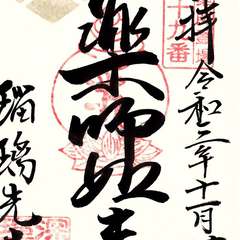 拝
令和二年十一月
十九番
薬師如来
瑠璃光